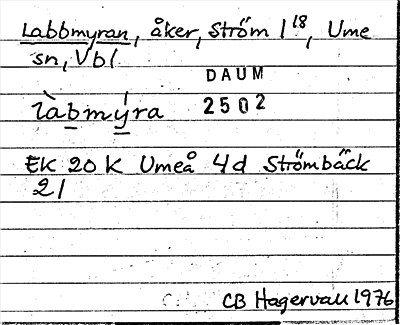 Labbmyran, åker, Ström 1¹⁸, Ume
sn, Vbl
DAUM
2502
làbmýra
EK 20 K Umeå 4d Strömbäck
21
CB Hagervall 1976